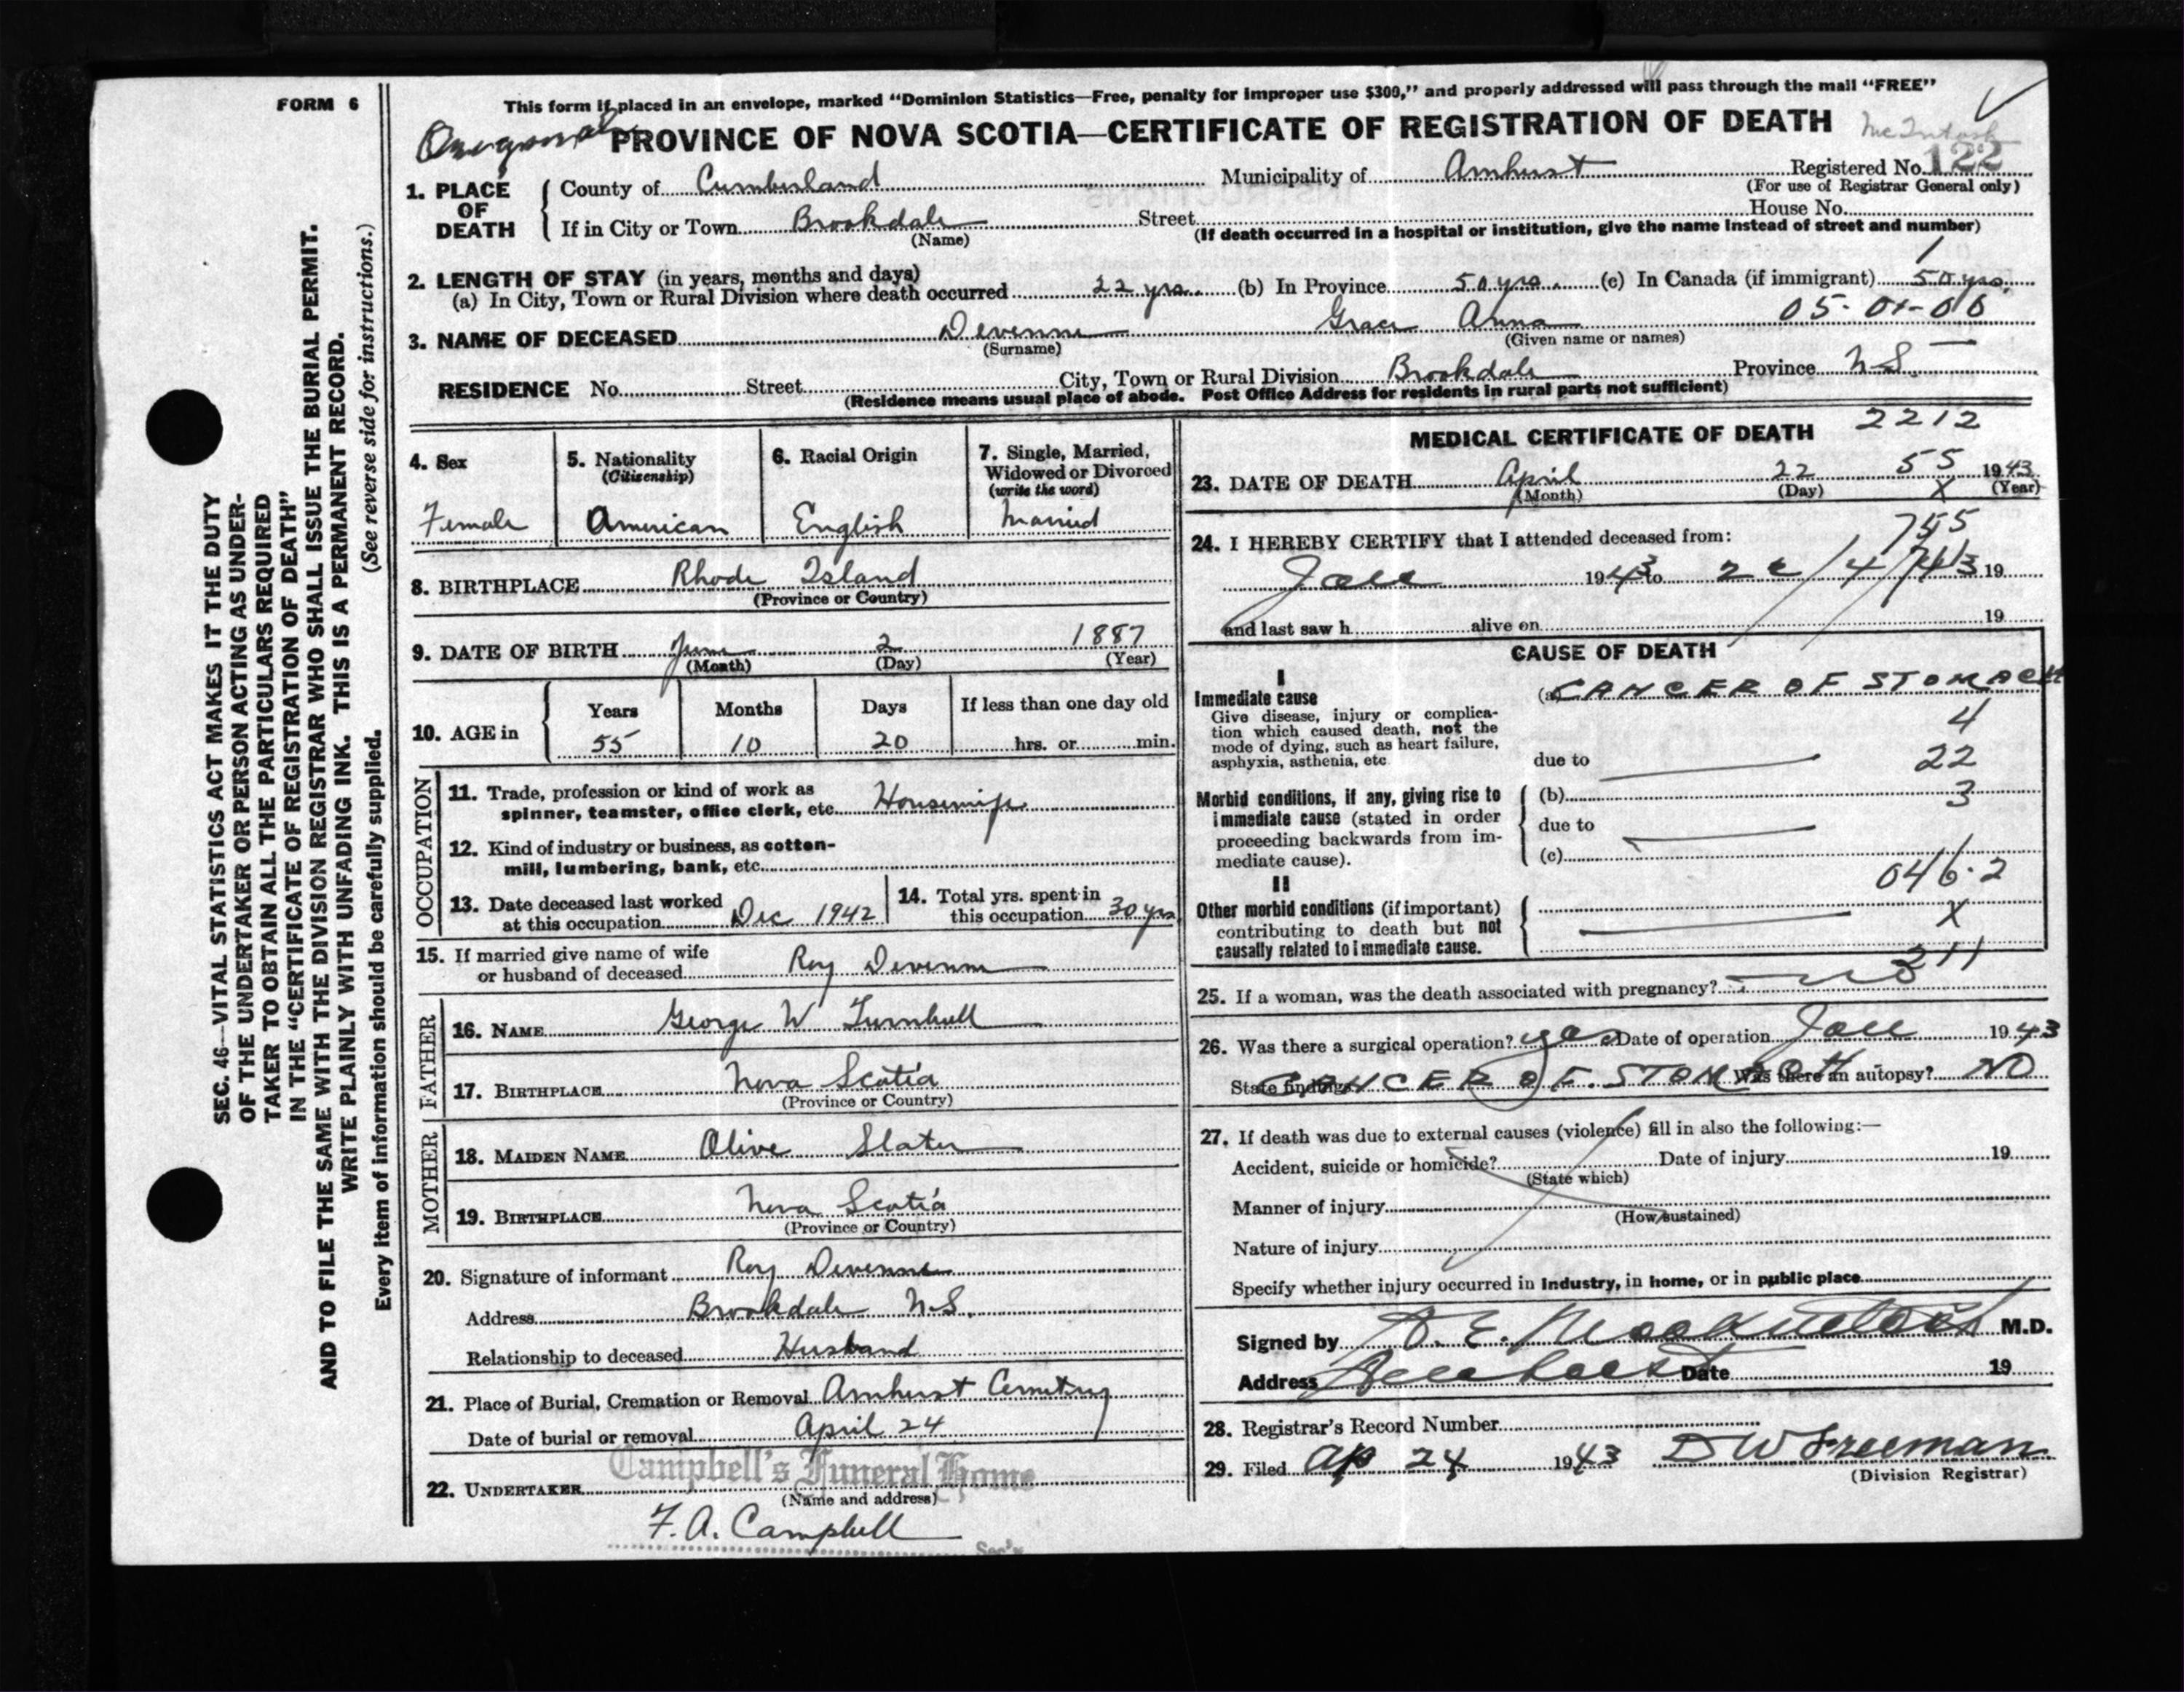 FORM 6
SEC. 46—VITAL STATISTICS ACT MAKES IT THE DUTY
OF THE UNDERTAKER OR PERSON ACTING AS UNDER-
TAKER TO OBTAIN ALL THE PARTICULARS REQUIRED
IN THE "CERTIFICATE OF REGISTRATION OF DEATH"
AND TO FILE THE SAME WITH THE DIVISION REGISTRAR WHO SHALL ISSUE THE BURIAL PERMIT.
WRITE PLAINLY WITH UNFADING INK. THIS IS A PERMANENT RECORD.
(See reverse side for instructions.)
Every item of information should be carefully supplied.
This form if placed in an envelope, marked "Dominion Statistics—Free, penalty for improper use $300," and properly addressed will pass through the mail "FREE"
PROVINCE OF NOVA SCOTIA—CERTIFICATE OF REGISTRATION OF DEATH
McIntosh
1. PLACE OF DEATH
County of Cumberland Municipality of Amherst Registered No. 122
(For use of Registrar General only)
If in City or Town Brookdale Street House No.
(Name) (If death occurred in a hospital or institution, give the name instead of street and number)
2. LENGTH OF STAY (in years, months and days)
(a) In City, Town or Rural Division where death occurred 22 yrs. (b) In Province 50 yrs. (c) In Canada (if immigrant) 50 yrs.
3. NAME OF DECEASED Devenne Grace Anna
(Surname) (Given name or names)
RESIDENCE No. Street City, Town or Rural Division Brookdale Province N.S.
(Residence means usual place of abode. Post Office Address for residents in rural parts not sufficient)
4. Sex
Female
5. Nationality
(Citizenship)
American
6. Racial Origin
English
7. Single, Married,
Widowed or Divorced
(write the word)
Married
8. BIRTHPLACE Rhode Island
(Province or Country)
9. DATE OF BIRTH June 2 1887
(Month) (Day) (Year)
10. AGE in
Years Months Days If less than one day old
55 10 20 hrs. or min.
OCCUPATION
11. Trade, profession or kind of work as
spinner, teamster, office clerk, etc. Housewife
12. Kind of industry or business, as cotton-
mill, lumbering, bank, etc.
13. Date deceased last worked
at this occupation Dec 1942
14. Total yrs. spent in
this occupation 30 yrs
15. If married give name of wife
or husband of deceased Roy Devenne
FATHER
16. NAME George W Turnbull
17. BIRTHPLACE Nova Scotia
(Province or Country)
MOTHER
18. MAIDEN NAME Olive Slater
19. BIRTHPLACE Nova Scotia
(Province or Country)
20. Signature of informant Roy Devenne
Address Brookdale N.S.
Relationship to deceased Husband
21. Place of Burial, Cremation or Removal Amherst Cemetry
Date of burial or removal April 24
Campbell's Funeral Home
22. UNDERTAKER
(Name and address)
F. A. Campbell
Sec'y
MEDICAL CERTIFICATE OF DEATH 2212
55
23. DATE OF DEATH April 22 1943
(Month) (Day) X (Year)
755
24. I HEREBY CERTIFY that I attended deceased from:
1943 to 22/4/43 19
and last saw h alive on 19
CAUSE OF DEATH
I
Immediate cause
Give disease, injury or complica-
tion which caused death, not the
mode of dying, such as heart failure,
asphyxia, asthenia, etc
(a) CANCER OF STOMACH
4
due to 22
Morbid conditions, if any, giving rise to
immediate cause (stated in order
proceeding backwards from im-
mediate cause).
(b) 3
due to
(c)
046.2
II
Other morbid conditions (if important)
contributing to death but not
causally related to immediate cause.
X
211
25. If a woman, was the death associated with pregnancy? no
26. Was there a surgical operation? yes Date of operation 1943
State findings CANCER OF STOMACH Was there an autopsy? NO
27. If death was due to external causes (violence) fill in also the following:—
Accident, suicide or homicide? Date of injury 19
(State which)
Manner of injury
(How sustained)
Nature of injury
Specify whether injury occurred in industry, in home, or in public place
Signed by M.D.
Address Date 19
28. Registrar's Record Number
29. Filed Ap 24 1943 D W Freeman
(Division Registrar)